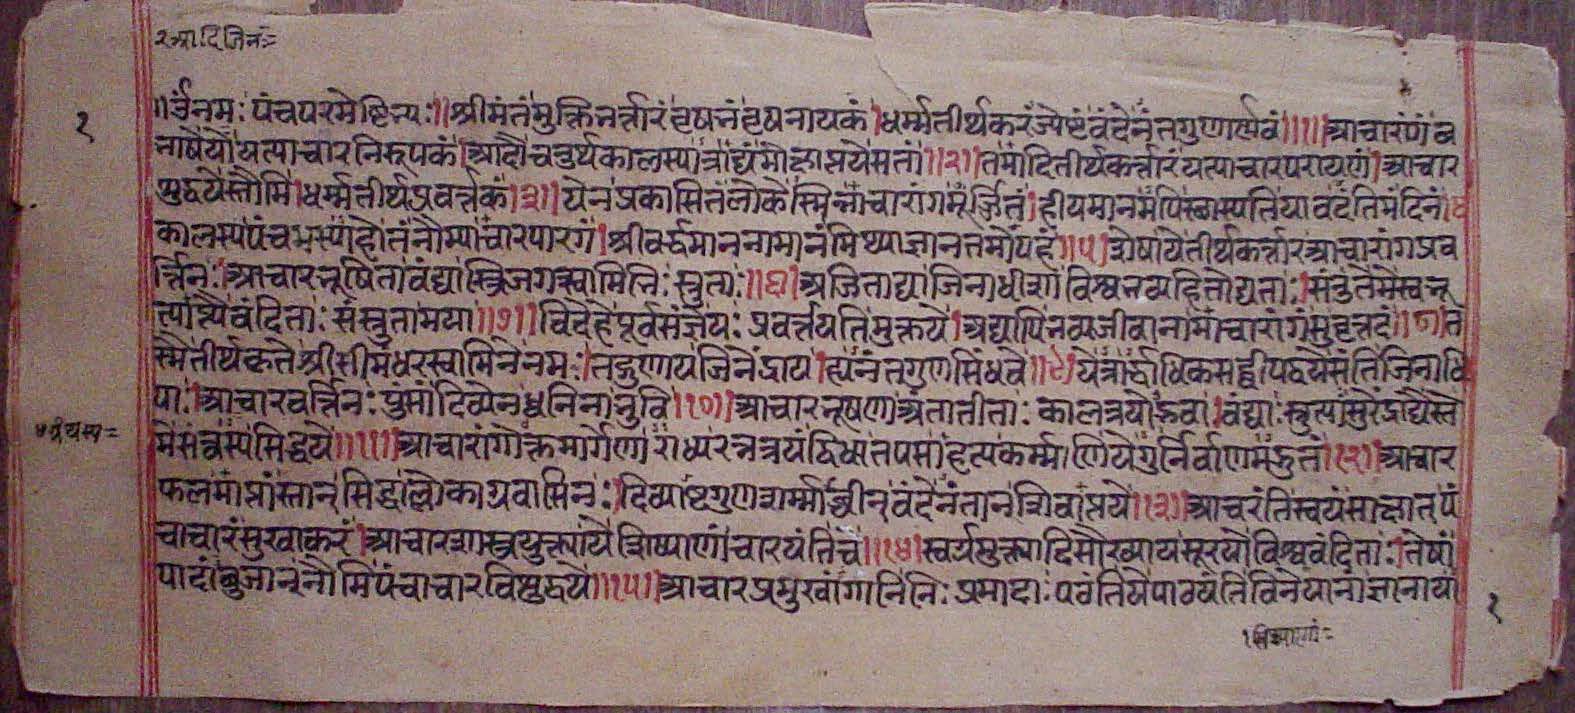 २ आदिजिनं=
॥ र्उनमः पंचपरमेष्टिभ्यः॥ श्रीमंतं मुक्तिभर्त्तारं वृषभं वृषनायकं। धर्म्मतीर्थकरं ज्येष्टं वंदेनंतगुणार्णवं॥१॥ आचारंगं ब
१
भाषे यो यत्याचारनिरूपकं। आदौ चतुर्थकालस्यात्राद्यं मोक्षाप्तये सतां॥२॥ तमादितीर्थकर्त्तारं यत्याचारपरायणं। आचार
शुद्धये स्तौमि। धर्म्मतीर्थप्रवर्त्तकं।३। येन प्रकासितं लोकेस्मिन्नाचारांगमूर्ज्जितं। हीयमानमपि स्थास्यति यावदंतिमं दिनं।४
कालस्य पंचमस्याहो तं नौम्याचारपारगं। श्रीवर्द्धमाननामानं मिथ्याज्ञानतमोपहं॥५। शेषा ये तीर्थकर्त्तार आचारांगप्रव
र्त्तिनः। आचारभूषिता वंद्यास्त्रिजगत्स्वामिभिः स्तुत्याः॥६। अजिताद्या जिनाधीशा विश्वभव्यहितोद्यताः। संतु ते मे स्वभू
त्याप्त्यै वंदिताः संस्तुता मया॥७॥ विदेहे पूर्वसंज्ञे यः प्रवर्त्तयति मुक्तये। अद्यापि भव्यजीवानामाचारांगं सुवृत्तदं॥८। त
स्मै तीर्थकृते श्रीसीमंधरस्वामिने नमः। तद्गुणाय जिनेंद्राय। ह्यनंतगुणसिंधवे।९। येत्रार्द्धाधिकसद्द्वीपद्वये संति जिनाधि
पाः। आचारवर्त्तिनः पुंसां दिव्येन ध्वनिना भुवि।१०। आचारभूषणा अंतातीताः कालत्रयोद्भवाः। वंद्याः स्तुत्याः सुरेंद्राद्यैस्ते
मे संत्वस्य सिद्धये॥११॥ आचारांगोक्तमार्गेणाराध्य रत्नत्रयं द्विधा। तपसा हत्य कर्म्माणि येगुर्निर्वाणमद्भुतं।१२। आचार
फलमाप्तांस्तान् सिद्धान् लोकाग्रवासिनः। दिव्याष्टगुणशर्म्माब्धीन् वंदेनंतान् शिवाप्तये।१३। आचरंति स्वयं साक्षात् पं
चाचारं सुखाकरं। आचारशास्त्रयुक्त्या ये शिष्याणां चारयंति च॥१४। स्वर्यमुक्त्यादिसौख्याय सूरयो विश्ववंदिताः। तेषां
पादांबुजान् नौमि पंचाचारविशुद्धये॥१५। आचारप्रमुखांगानि निःप्रमादाः पठंति ये पाठयंति विनेयानां ज्ञानाया
१